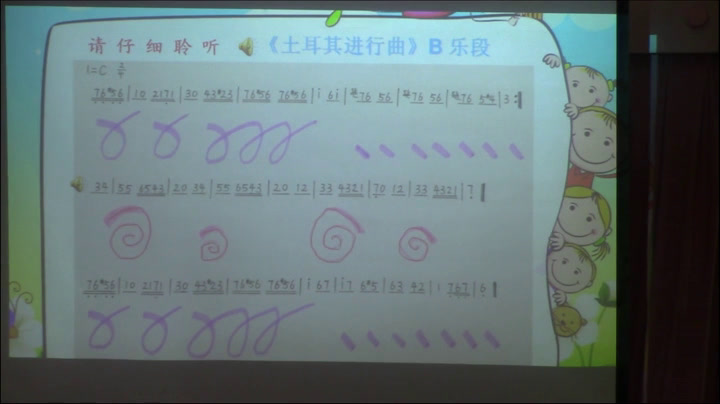 请仔细聆听 《土耳其进行曲》B 乐段
1=C 2/4
76#56 | 10 2171 | 30 43#23 | 76#56 76#56 | i 6i | 76 56 | 76 56 | 76 5#4 | 3 :‖
34 | 55 6543 | 20 34 | 55 6543 | 20 12 | 33 4321 | 70 12 | 33 4321 | 7 ‖
76#56 | 10 2171 | 30 43#23 | 76#56 76#56 | i 67 | i7 6#5 | 63 42 | 1 767 | 6 ‖